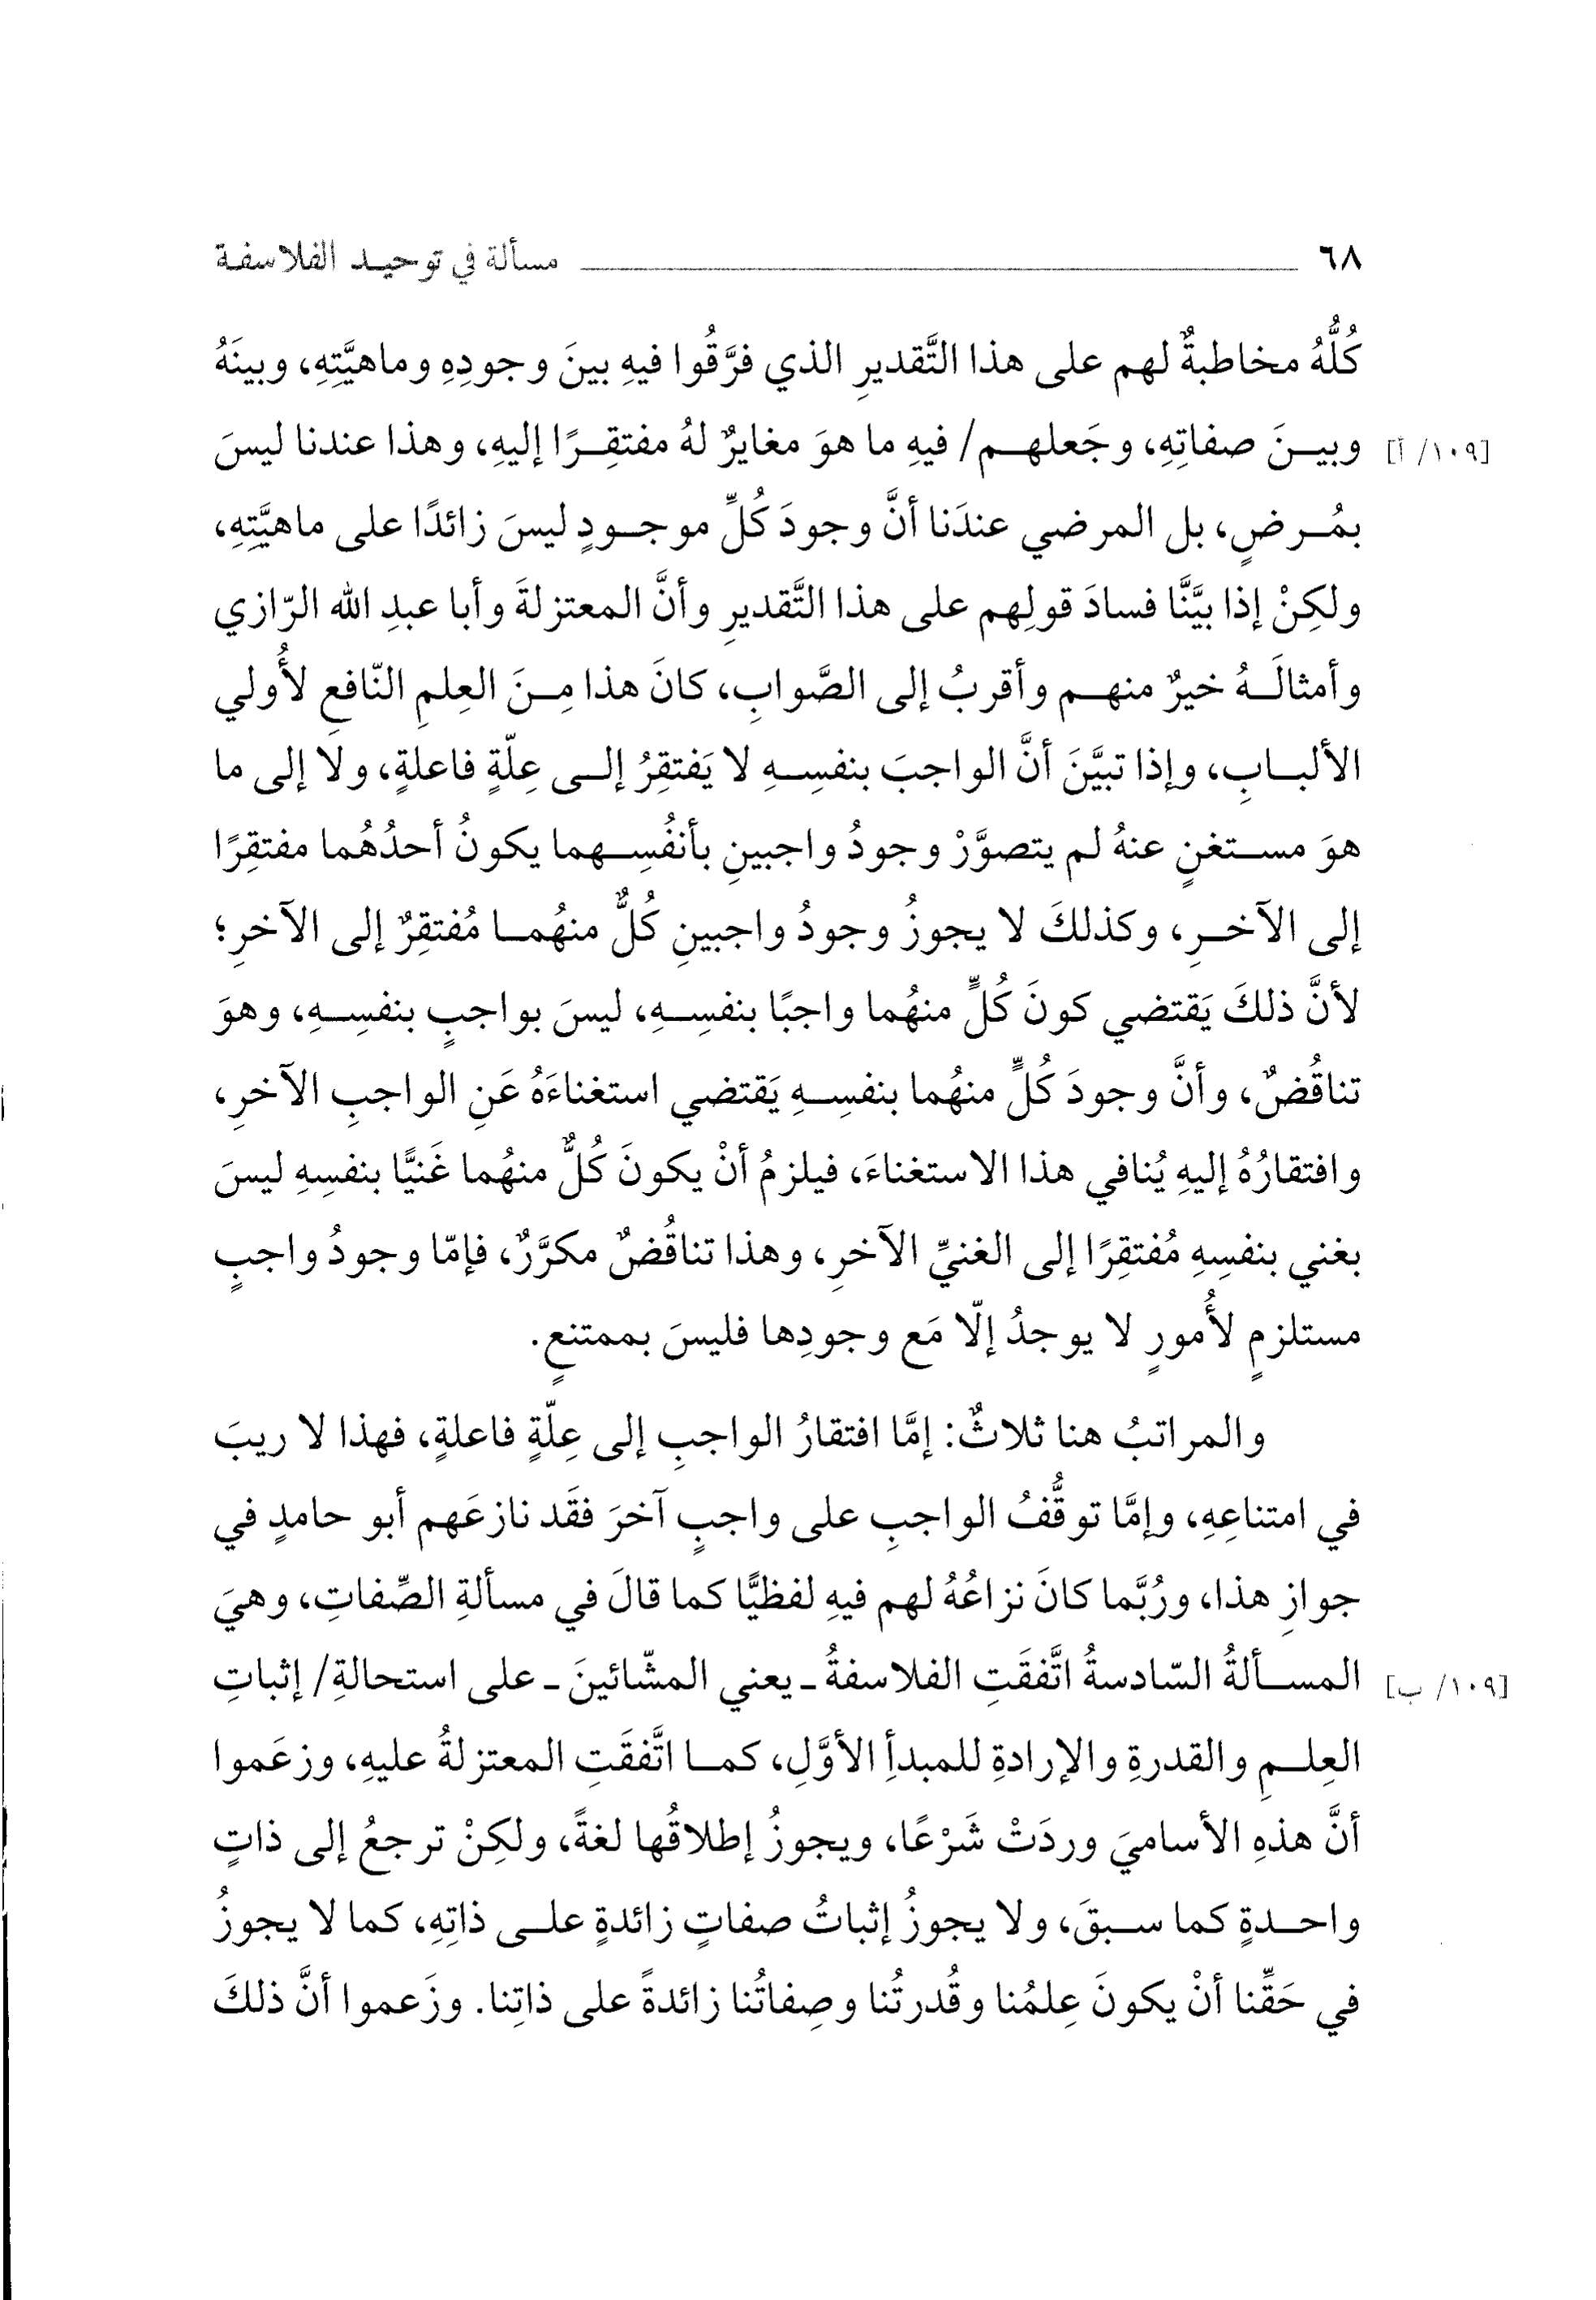 ٦٨ مسألة في توحيد الفلاسفة
كُلُّهُ مخاطبةٌ لهم على هذا التَّقديرِ الذي فرَّقُوا فيهِ بينَ وجودِهِ وماهيَّتِهِ، وبينَهُ
[١٠٩/ أ] وبينَ صفاتِهِ، وجَعلهم/ فيهِ ما هوَ مغايرٌ لهُ مفتقِرًا إليهِ، وهذا عندنا ليسَ
بمُرضٍ، بل المرضي عندَنا أنَّ وجودَ كُلِّ موجودٍ ليسَ زائدًا على ماهيَّتِهِ،
ولكِنْ إذا بيَّنَّا فسادَ قولِهم على هذا التَّقديرِ وأنَّ المعتزلةَ وأبا عبدِ الله الرّازي
وأمثالَهُ خيرٌ منهم وأقربُ إلى الصَّوابِ، كانَ هذا مِنَ العِلمِ النّافعِ لأُولي
الألبابِ، وإذا تبيَّنَ أنَّ الواجبَ بنفسِهِ لا يَفتقِرُ إلى عِلّةٍ فاعلةٍ، ولا إلى ما
هوَ مستغنٍ عنهُ لم يتصوَّرْ وجودُ واجبينِ بأنفُسِهما يكونُ أحدُهُما مفتقِرًا
إلى الآخرِ، وكذلكَ لا يجوزُ وجودُ واجبينِ كُلٌّ منهُما مُفتقِرٌ إلى الآخرِ؛
لأنَّ ذلكَ يَقتضي كونَ كُلٍّ منهُما واجبًا بنفسِهِ، ليسَ بواجبٍ بنفسِهِ، وهوَ
تناقُضٌ، وأنَّ وجودَ كُلٍّ منهُما بنفسِهِ يَقتضي استغناءَهُ عَنِ الواجبِ الآخرِ،
وافتقارُهُ إليهِ يُنافي هذا الاستغناءَ، فيلزمُ أنْ يكونَ كُلٌّ منهُما غَنيًّا بنفسِهِ ليسَ
بغني بنفسِهِ مُفتقِرًا إلى الغنيِّ الآخرِ، وهذا تناقُضٌ مكرَّرٌ، فإمّا وجودُ واجبٍ
مستلزمٍ لأُمورٍ لا يوجدُ إلّا مَع وجودِها فليسَ بممتنعٍ.
والمراتبُ هنا ثلاثٌ: إمَّا افتقارُ الواجبِ إلى عِلّةٍ فاعلةٍ، فهذا لا ريبَ
في امتناعِهِ، وإمَّا توقُّفُ الواجبِ على واجبٍ آخرَ فقَد نازعَهم أبو حامدٍ في
جوازِ هذا، ورُبَّما كانَ نزاعُهُ لهم فيهِ لفظيًّا كما قالَ في مسألةِ الصِّفاتِ، وهيَ
[١٠٩/ ب] المسألةُ السّادسةُ اتَّفقَتِ الفلاسفةُ ـ يعني المشّائينَ ـ على استحالةِ/ إثباتِ
العِلمِ والقدرةِ والإرادةِ للمبدأِ الأوَّلِ، كما اتَّفقَتِ المعتزلةُ عليهِ، وزعَموا
أنَّ هذهِ الأساميَ وردَتْ شَرْعًا، ويجوزُ إطلاقُها لغةً، ولكِنْ ترجعُ إلى ذاتٍ
واحدةٍ كما سبقَ، ولا يجوزُ إثباتُ صفاتٍ زائدةٍ على ذاتِهِ، كما لا يجوزُ
في حَقِّنا أنْ يكونَ عِلمُنا وقُدرتُنا وصِفاتُنا زائدةً على ذاتِنا. وزَعموا أنَّ ذلكَ